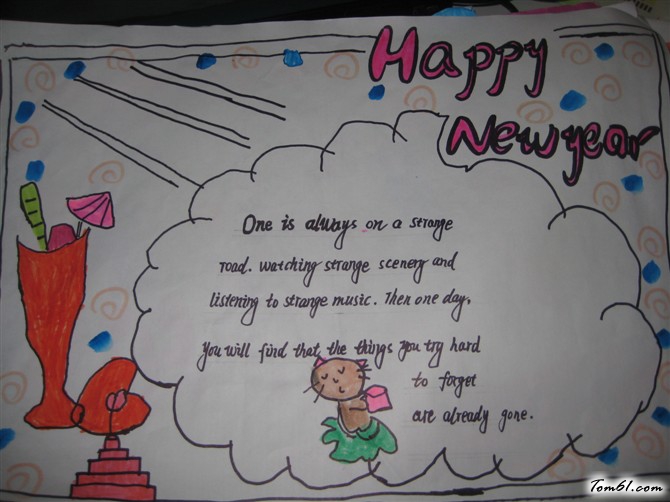 Happy
New year
One is always on a strange
road. watching strange scenery and
listening to strange music. Then one day,
You will find that the things you try hard
to forget
are already gone.
Tom61.com